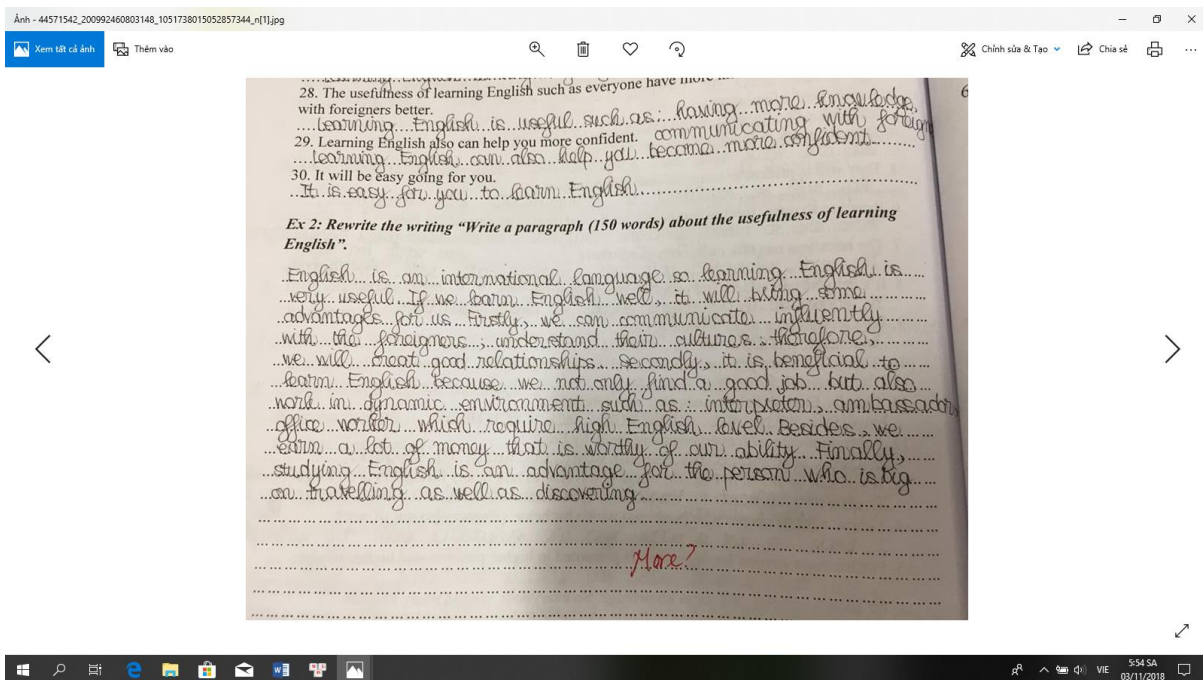 Ảnh - 44571542_200992460803148_1051738015052857344_n[1].jpg
Xem tất cả ảnh Thêm vào Chỉnh sửa & Tạo Chia sẻ
28. The usefulness of learning English such as everyone have more
with foreigners better.
Learning English is useful such as: having more knowledge,
communicating with foreign
29. Learning English also can help you more confident.
Learning English can also help you become more confident
30. It will be easy going for you.
It is easy for you to learn English
Ex 2: Rewrite the writing “Write a paragraph (150 words) about the usefulness of learning
English”.
English is an international language so learning English is
very useful. If we learn English well, it will bring some
advantages for us. Firstly, we can communicate influently
with the foreigners, understand their cultures, therefore,
we will creat good relationships. Secondly, it is beneficial to
learn English because we not only find a good job but also
work in dynamic environment such as: interpretor, ambassador,
office worker which require high English level. Besides, we
earn a lot of money that is worthy of our ability. Finally,
studying English is an advantage for the person who is big
on travelling as well as discovering.
More?
VIE 5:54 SA
03/11/2018